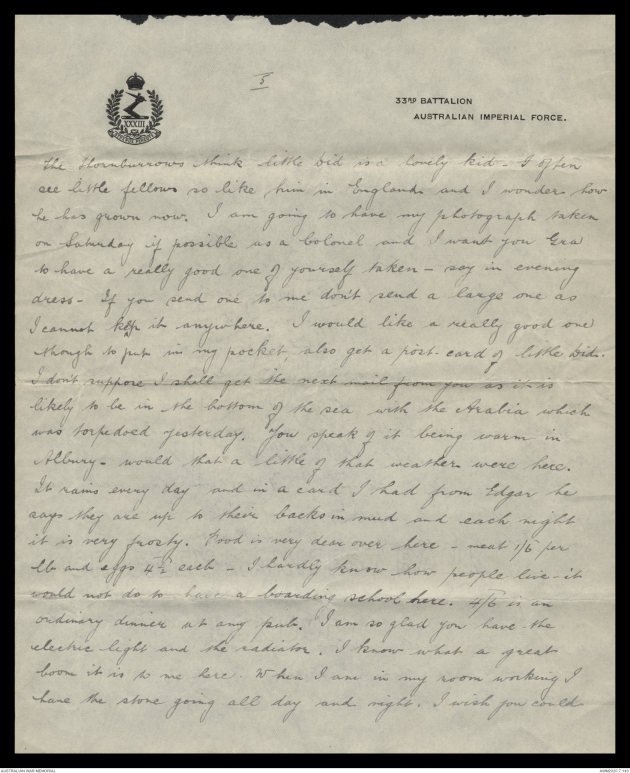 5
XXXIII
33RD BATTALION
AUSTRALIAN IMPERIAL FORCE.
The Thornburrows think little bid is a lovely kid - I often
see little fellows so like him in England and I wonder how
he has grown now. I am going to have my photograph taken
on Saturday if possible as a Colonel and I want you Gra
to have a really good one of yourself taken - say in evening
dress - If you send one to me don't send a large one as
I cannot keep it anywhere. I would like a really good one
though to put in my pocket, also get a post-card of little bid.
I don't suppose I shall get the next mail from you as it is
likely to be in the bottom of the sea with the Arabia which
was torpedoed yesterday. You speak of it being warm in
Albury - would that a little of that weather were here.
It rains every day and in a card I had from Edgar he
says they are up to their backs in mud and each night
it is very frosty. Food is very dear over here - meat 1/6 per
lb and eggs 4½ each - I hardly know how people live - it
would not do to have a boarding school here. 4/6 is an
ordinary dinner at any pub. I am so glad you have the
electric light and the radiator. I know what a great
boon it is to me here. When I am in my room working I
have the stove going all day and night. I wish you could
AUSTRALIAN WAR MEMORIAL